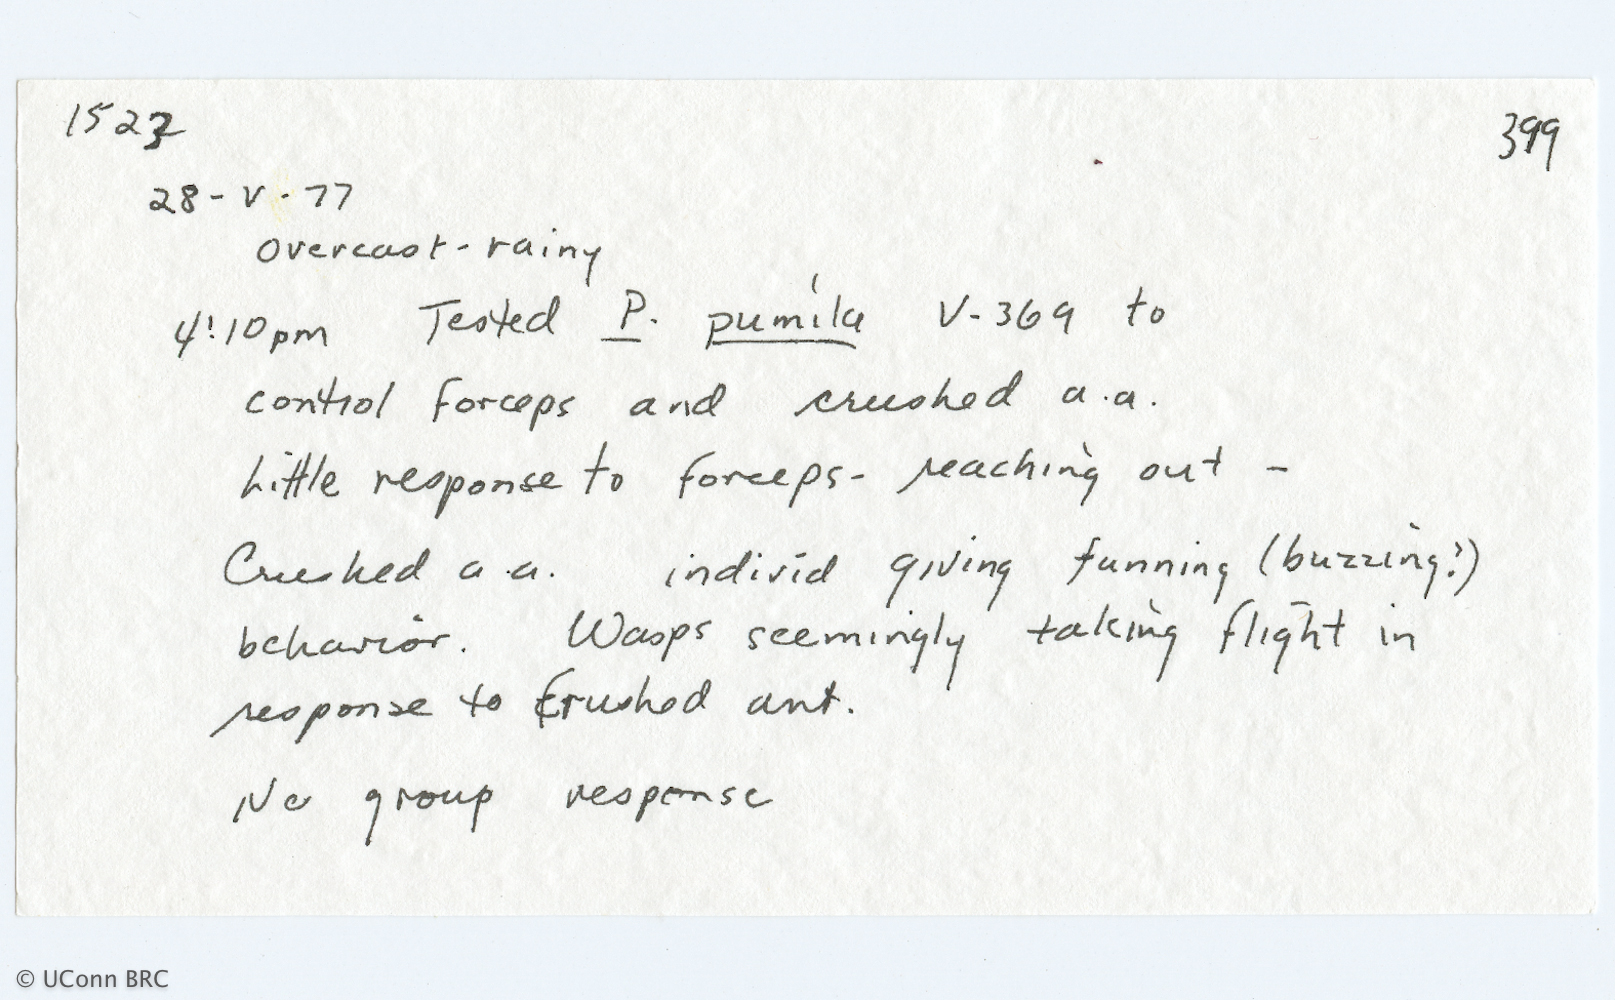 1522
399
28-V-77
overcast-rainy
4:10pm Tested P. pumila V-369 to
control forceps and crushed a.a.
Little response to forceps- reaching out -
Crushed a.a. individ giving fanning (buzzing?)
behavior. Wasps seemingly taking flight in
response to Crushed ant.
No group response
© UConn BRC